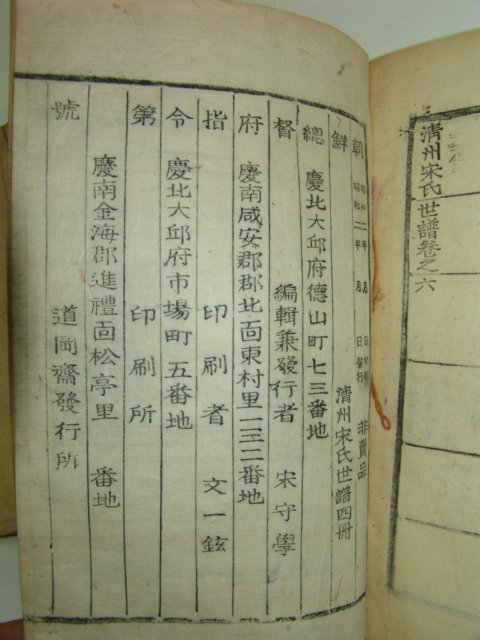 清州宋氏世譜卷之六
朝 昭和二年 月 日
昭和二年 月 日發行 非賣品
鮮 清州宋氏世譜四冊
總 慶北大邱府德山町七三番地
督 編輯兼發行者 宋守學
府 慶南咸安郡郡北面東村里一三二番地
指 印刷者 文一鉉
令 慶北大邱府市場町五番地
第 印刷所
慶南金海郡進禮面松亭里 番地
號 道岡齋發行所